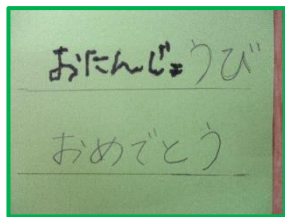 おにんじょうび
おめでとう